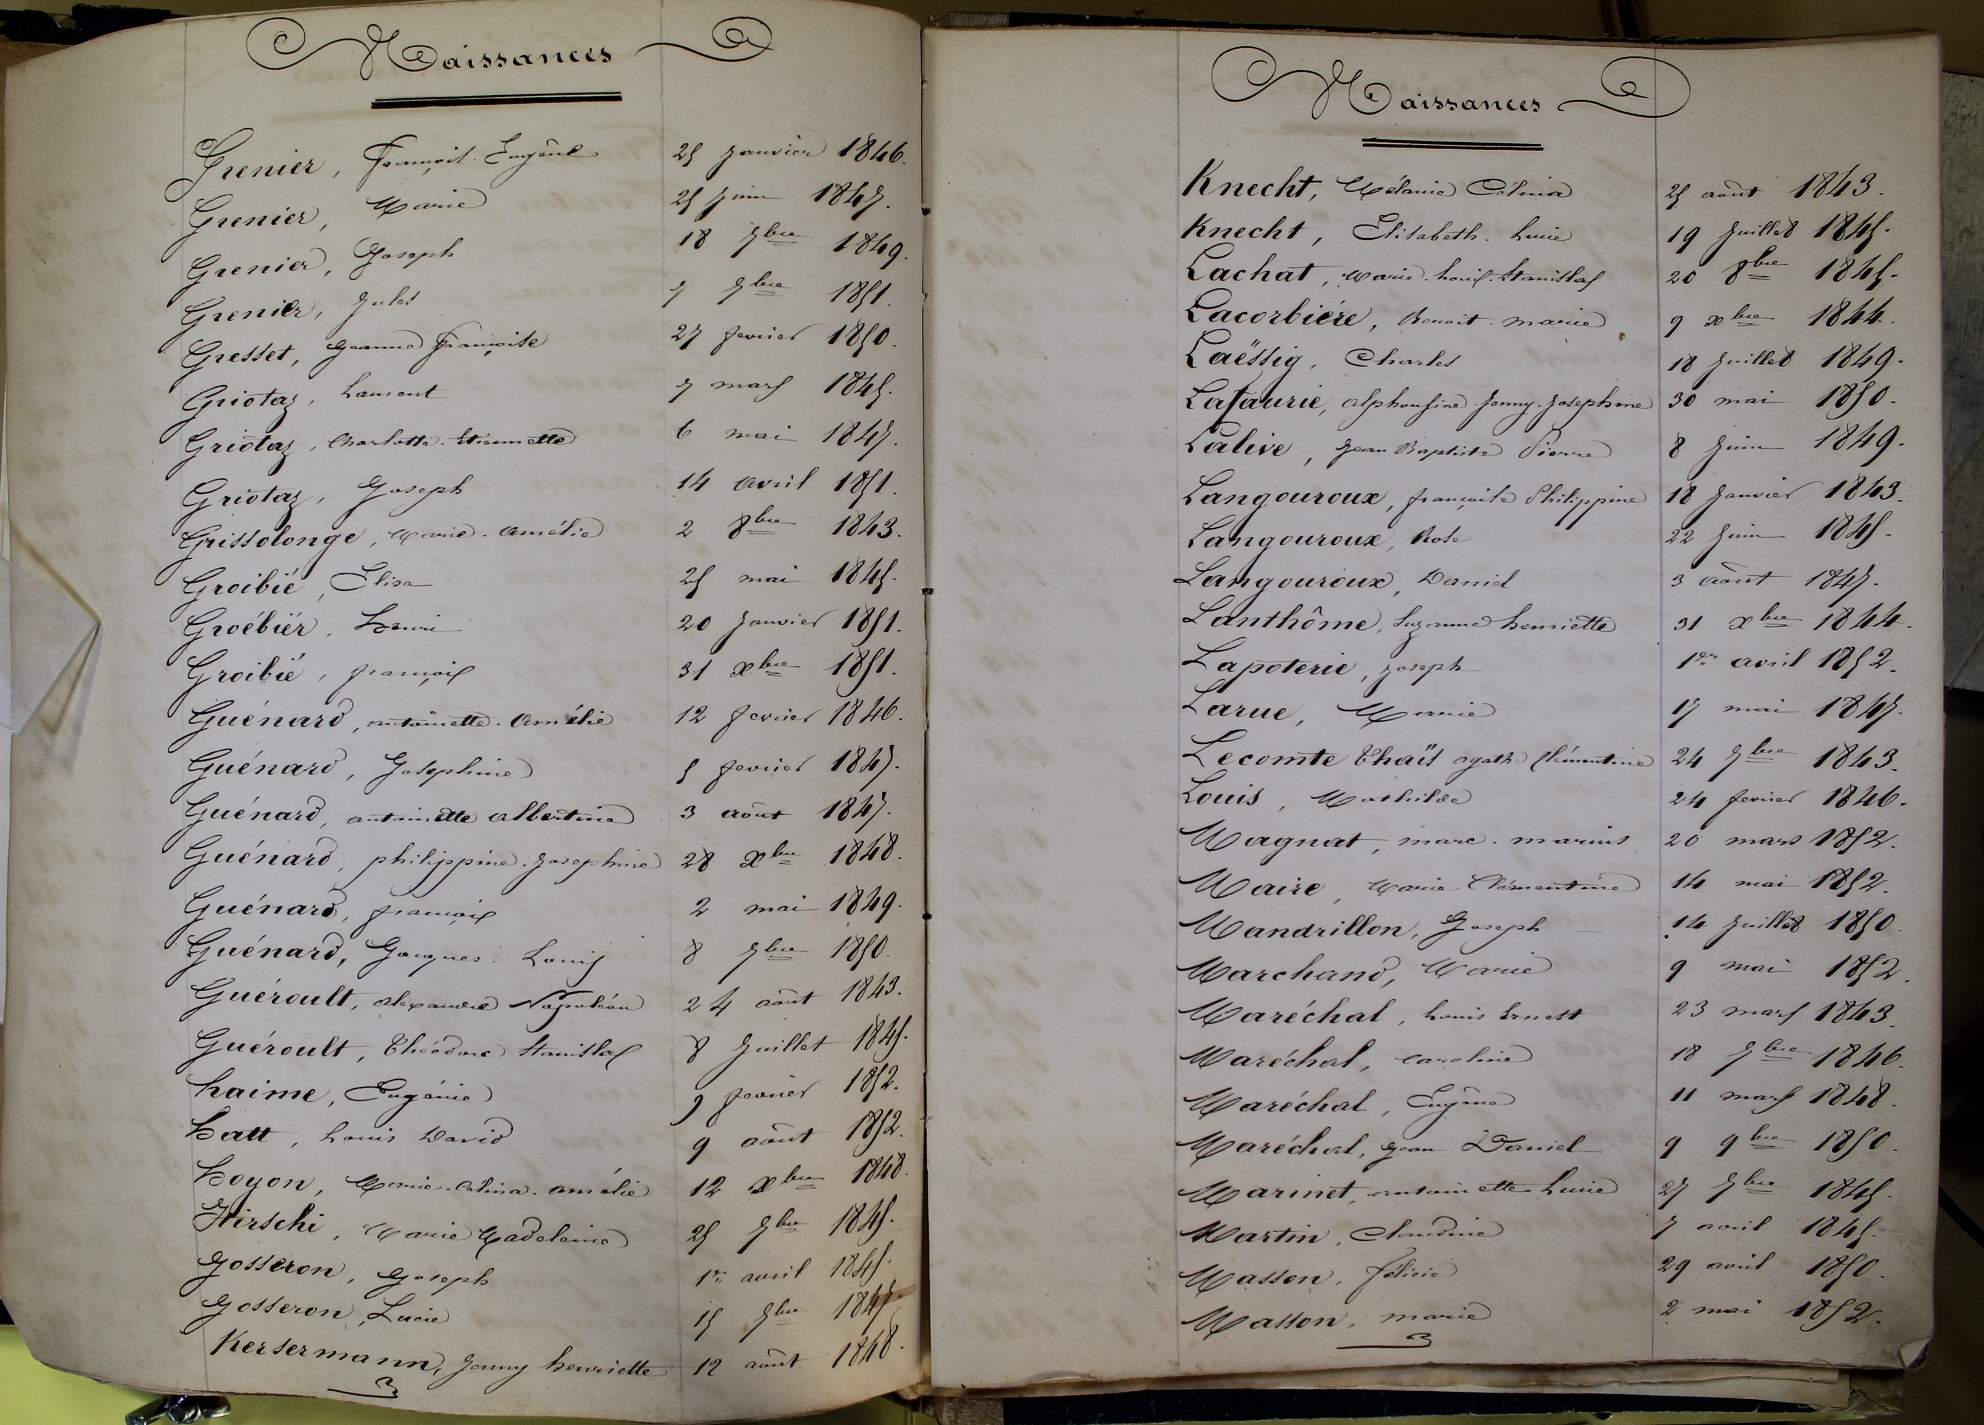 Naissances
Grenier, François Eugène 25 Janvier 1846.
Grenier, Marie 25 Juin 1847.
Grenier, Joseph 18 7bre 1849.
Grenier, Jules 7 7bre 1851.
Gresset, Jeanne Françoise 27 fevrier 1850.
Griotaz, Laurent 7 mars 1845.
Griotaz, Charlotte Etiennette 6 mai 1847.
Griotaz, Joseph 14 avril 1851.
Grissolonge, Marie Amélie 2 8bre 1843.
Groibié, Elisa 25 mai 1845.
Groébiér, Henri 20 Janvier 1851.
Groibié, françois 31 xbre 1851.
Guénard, antoinette Amélie 12 fevrier 1846.
Guénard, Joséphine 5 fevrier 1847.
Guénard, antoinette albertine 3 août 1847.
Guénard, philippine Josephine 28 xbre 1848.
Guénard, françois 2 mai 1849.
Guénard, Jacques Louis 8 7bre 1850.
Guéroult, alexandre Napoléon 24 août 1843.
Guéroult, Théodore Stanislas 8 Juillet 1845.
haime, Eugénie 9 fevrier 1852.
Hatt, Louis David 9 août 1852.
Hoyon, Marie Celina amélie 12 xbre 1848.
Hirschi, Marie Madeleine 25 7bre 1845.
Josseron, Joseph 1er avril 1845.
Josseron, Lucie 15 7bre 1847.
Kersermann, Jenny henriette 12 août 1848.
Naissances
Knecht, Mélanie Célina 25 août 1843.
Knecht, Elisabeth Lucie 19 Juillet 1845.
Lachat, Marie Louis Stanislas 20 8bre 1845.
Lacorbiére, Benoit marie 9 xbre 1844.
Laëssig, Charles 18 Juillet 1849.
Lafaurie, alphonsine Jenny Josephine 30 mai 1850.
Lalive, Jean Baptiste Pierre 8 Juin 1849.
Langouroux, françoise Philippine 18 Janvier 1843.
Langouroux, Rose 22 Juin 1845.
Langouroux, Daniel 3 août 1847.
Lanthôme, Suzanne henriette 31 xbre 1844.
Lapoterie, joseph 1er avril 1852.
Larue, Marie 17 mai 1847.
Lecomte Thaïs agathe Clémentine 24 7bre 1843.
Louis, Mathilde 24 fevrier 1846.
Magnat, marc marius 20 mars 1852.
Maire, Marie Clémentine 14 mai 1852.
Mandrillon, Joseph 14 Juillet 1850.
Marchand, Marie 9 mai 1852.
Maréchal, Louis Ernest 23 mars 1843.
Maréchal, Caroline 18 7bre 1846.
Maréchal, Eugène 11 mars 1848.
Maréchal, Jean Daniel 9 9bre 1850.
Marinet, antoinette Lucie 27 7bre 1845.
Martin, Claudine 7 avril 1845.
Masson, félicie 29 avril 1850.
Masson, marie 2 mai 1852.